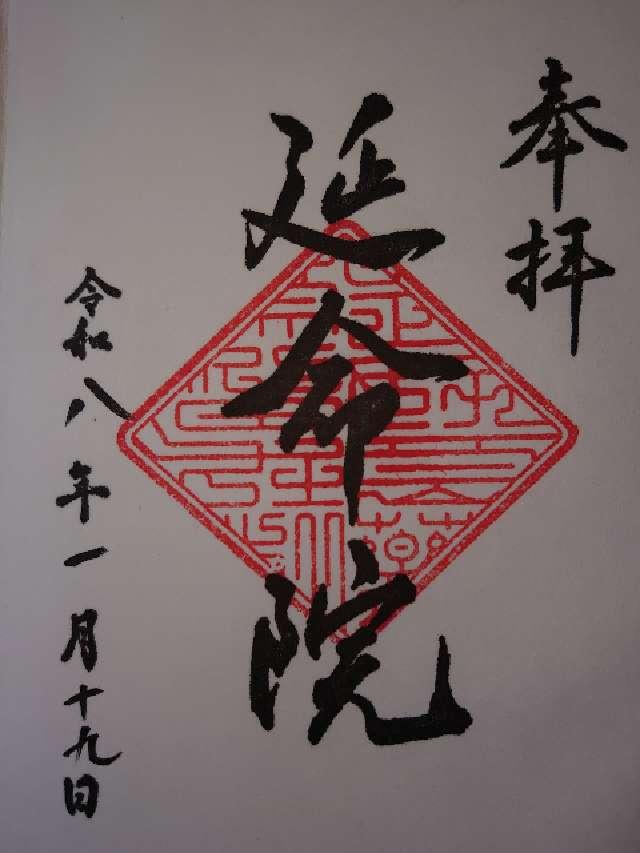 奉拝
延命院
令和八年一月十九日